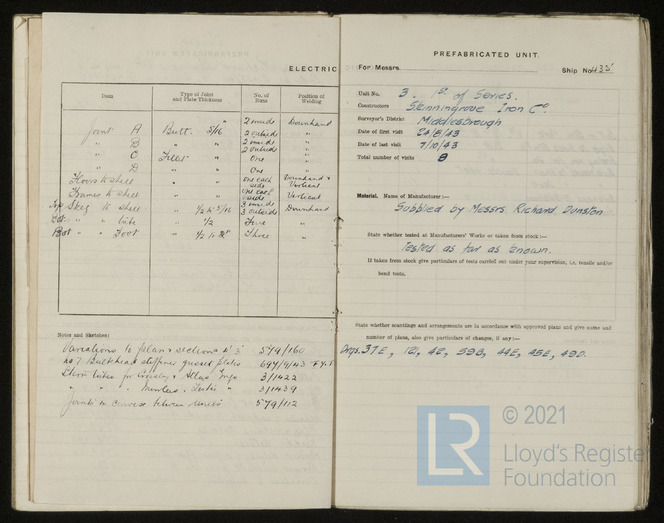 ELECTRIC
Item
Type of Joint and Plate Thickness
No. of Runs
Position of Welding
Joint A Butt. 5/16 2 inside 2 outside Downhand
" B " " 2 inside 2 outside "
" C Fillet " One "
" D " " One "
Floors to shell " " one each side Downhand & Vertical
Frames to shell " " one each side Vertical
Skeg to shell " 1/2 to 5/16 3 inside 3 outside Downhand
" " tube 1/2 Five "
Bot " " Foot 1/2 to Three "
Notes and Sketches:
Variations to plan & sections 579/160
No 7 Bulkhead stiffener gusset plates 694/9/43
Stern tubes for Crossley & Atlas Engs 3/1422
" " " " 3/1439
Joints in curves between Units 579/112
PREFABRICATED UNIT.
For Messrs.
Ship No. 435
Unit No. 3. 1st of Series.
Constructors Skinningrove Iron Co
Surveyor's District Middlesbrough
Date of first visit 24/8/43
Date of last visit 7/10/43
Total number of visits 8
Material. Name of Manufacturer:—
Supplied by Messrs. Richard Dunston
State whether tested at Manufacturers' Works or taken from stock:—
Tested as far as known.
If taken from stock give particulars of tests carried out under your supervision, i.e. tensile and/or
bend tests.
State whether scantlings and arrangements are in accordance with approved plans and give name and
number of plans, also give particulars of changes, if any:—
Drgs. 37E, 12, 4E, 59B, 44E, 45E, 49D.
© 2021
LR
Lloyd's Register
Foundation